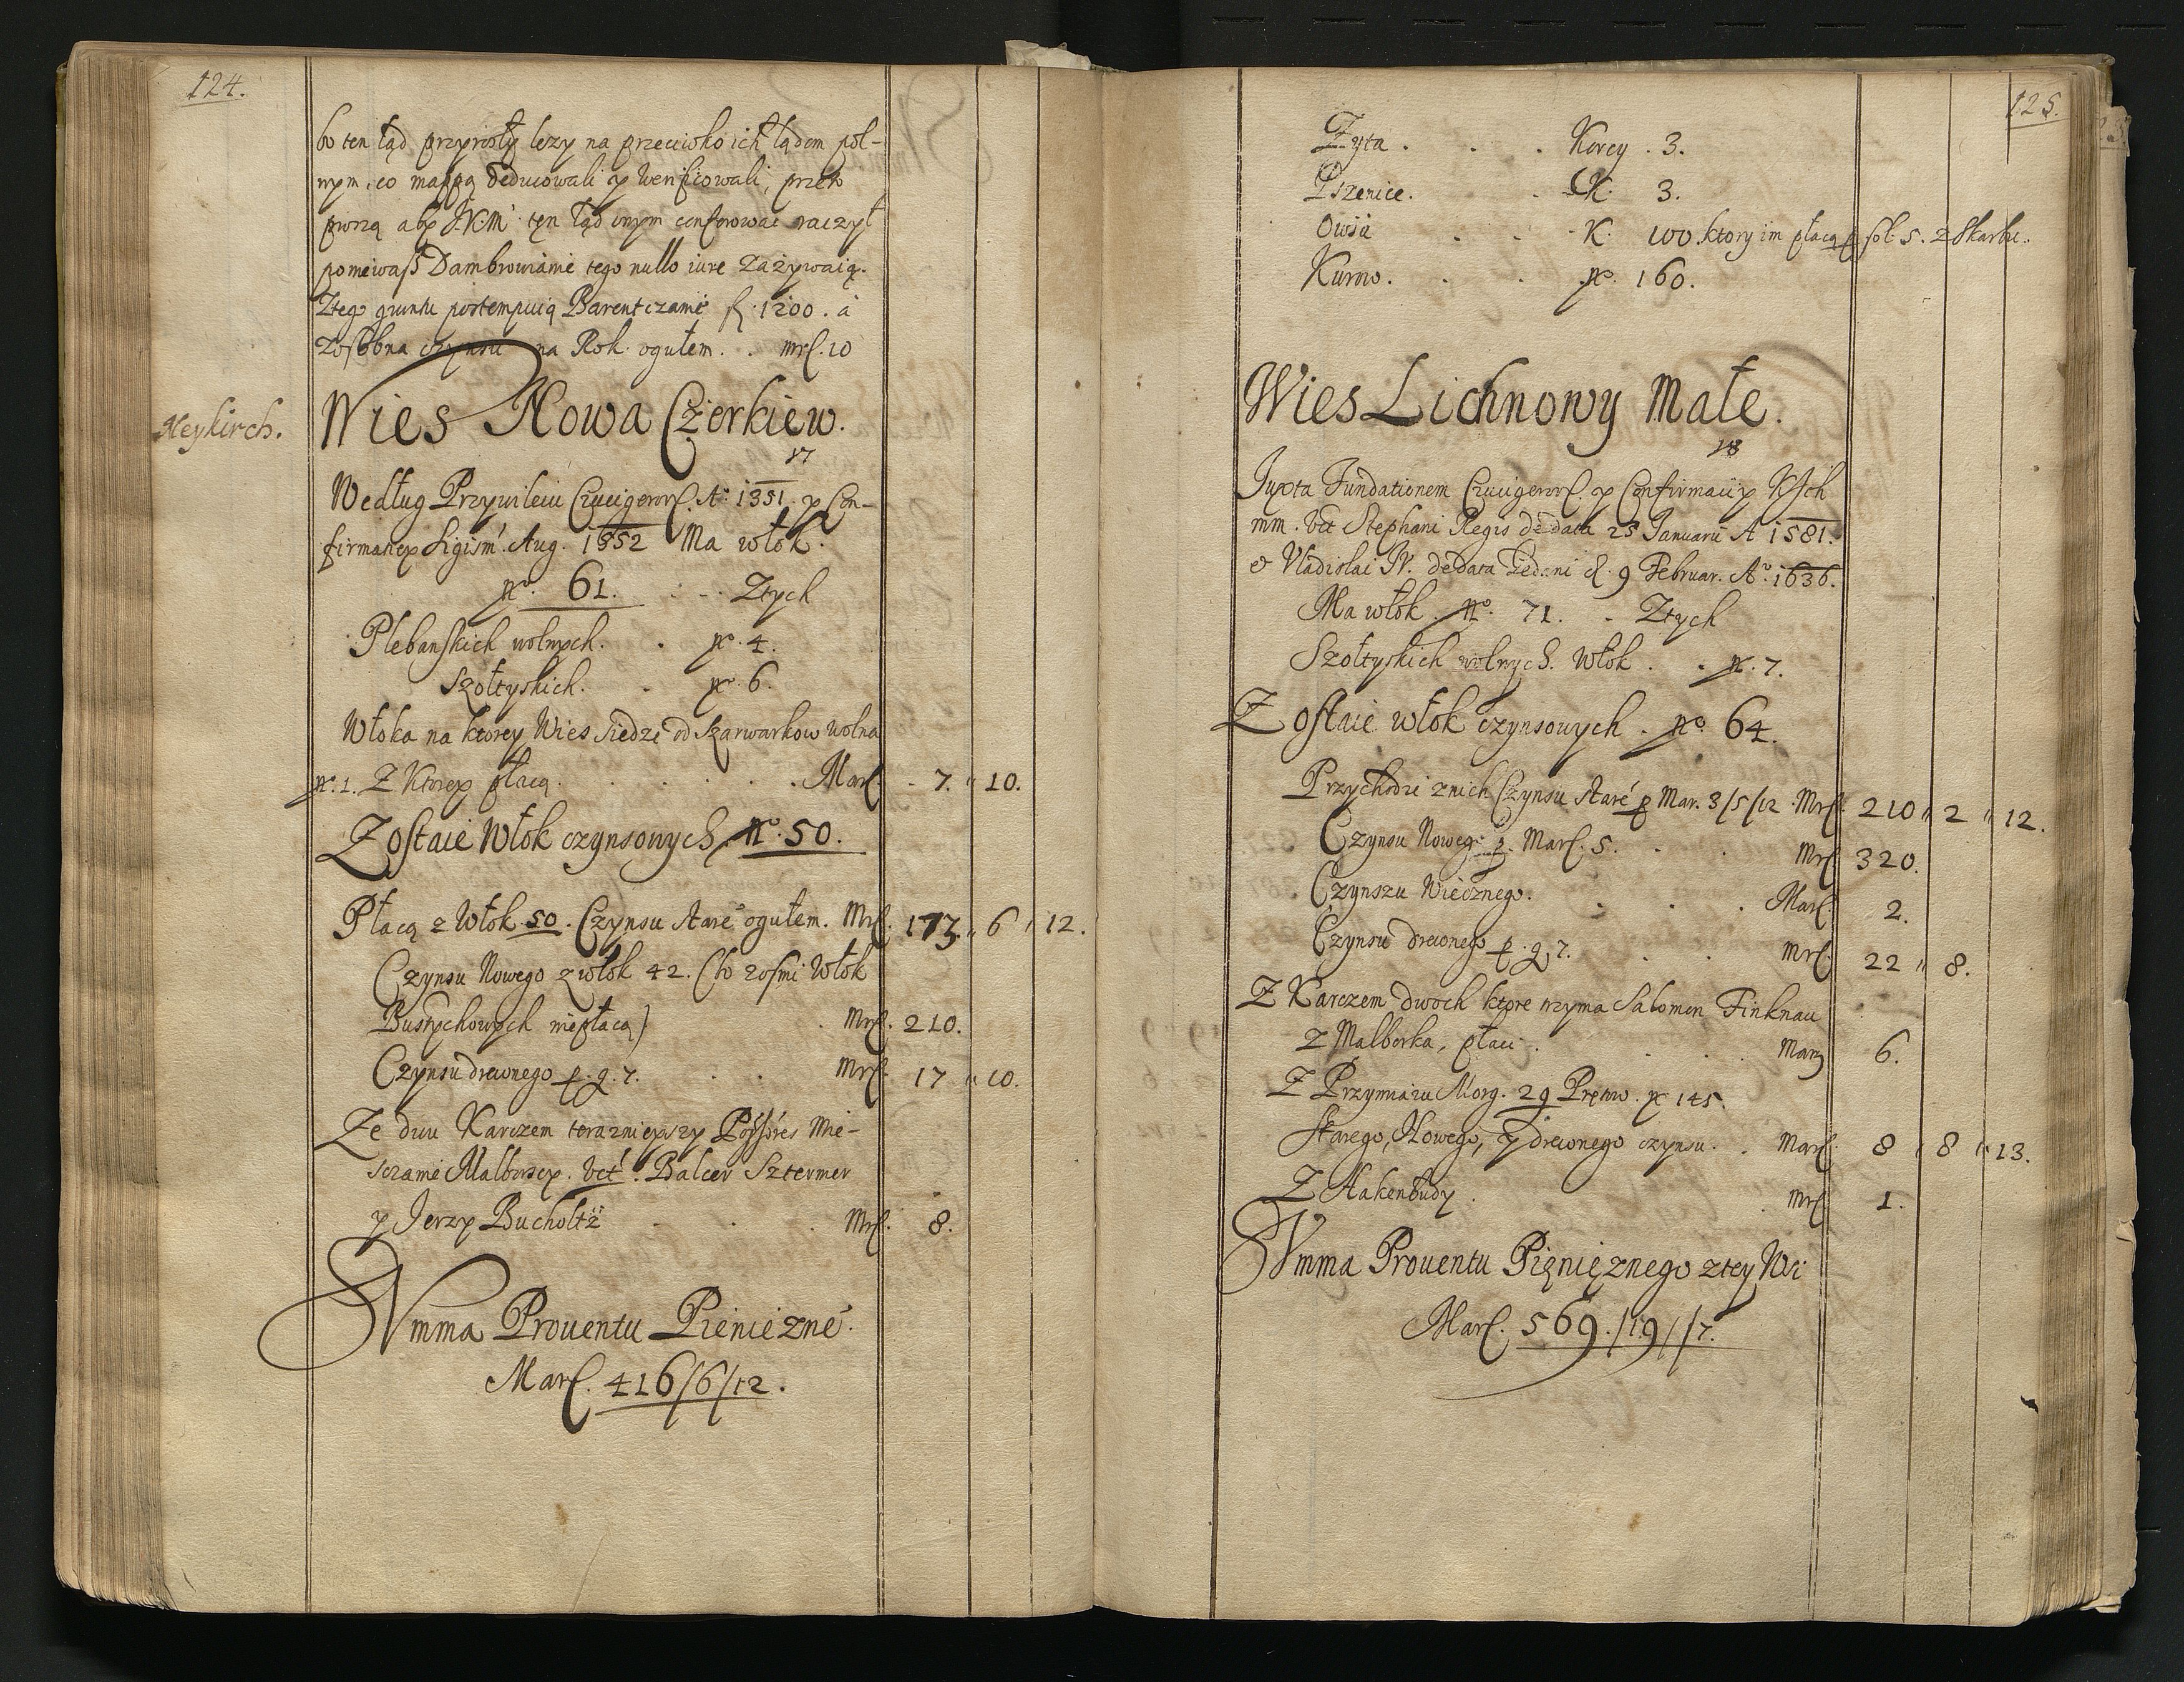 124.
bo ten ląd przyrosły lezy na przeciwko ich lądem pol-
nym, co mappą deducowali y werificowali, przeto
proszą aby J.K.M. tęn ląd onym conferowac raczył
poniewasz Dambrowianie tego nullo iure zazywaią.
Ztego gruntu postempuią Barentczanie fl. 1200. a
zosobna czynsu na Rok ogułem. . mrc. 10
Neykirch.
Wies Nowa Czerkiew.
17
Według Przywileiu Crucigeror. Aº 1351. y Con-
firmaciey Sigism. Aug. 1552 Ma włok.
nº. 61. . . Ztych
Plebanskich wolnych. . nº. 4.
Szołtyskich. . nº. 6.
Włoka na ktorey Wies siedzi od Szarwarkow wolna
nº. 1. Z Ktorey płacą. . . . . Marc. 7. " 10.
Zostaie Włok czynsowych nº. 50.
Płacą z Włok 50. Czynsu Stare° ogułem. Mrc. 173. " 6 " 12.
Czynsu Nowego z włok 42. (bo z osmi Włok
Bustychowych niepłacą) . Mrc. 210.
Czynsu drewnego p. g. 7. . . Mrc. 17 " 10.
Ze dwu Karczem terazniejszy Possores Mie-
sczanie Malborscy. Vct. Balcer Sztermer
y Jerzy Bucholtz . . . Mrc. 8.
Summa Prouentu Pieniezne°
Marc. 416/6/12.
125.
Zyta . . . Korcy . 3.
Pszenice. . K. 3.
Owsa . . K. 100. ktory im płacą p sol. 5. z Skarbu.
Kurow. . . nº. 160.
Wies Lichnowy Małe.
18
Juxta Fundationem Crucigeror. y Confirmaciy KJch
mm. Vct Stephani Regis de data 25 Januarii Aº 1581.
& Vladislai IV. de data Gedani d. 9 Februar. Aº. 1636.
Ma włok. nº. 71. . Ztych
Szołtyskich wolnych. Włok . . nº. 7.
Zostaie włok czynsowych . nº. 64.
Przychodzi znich Czynsu Stare° p Mar. 3/5/12 Mrc. 210 " 2 " 12.
Czynsu Noweg° p. Marc. 5. . . Mrc 320.
Czynszu Wiecznego. . . . Marc. 2.
Czynsu drewnego p. g. 7. . . Mrc. 22 " 8.
Z Karczem dwoch ktore trzyma Salomon Finknau
z Malborka, płaci . . . . Marc 6.
Z Przymiaru Morg. 29 Prętow. nº 145.
Starego, Nowego, y drewnego czynsu. . Marc. 8 " 8 " 13.
Z Hakenbudy . . Mrc. 1.
Summa Prouentu Pięnięznego ztey Wsi
Marc. 569./19//7.